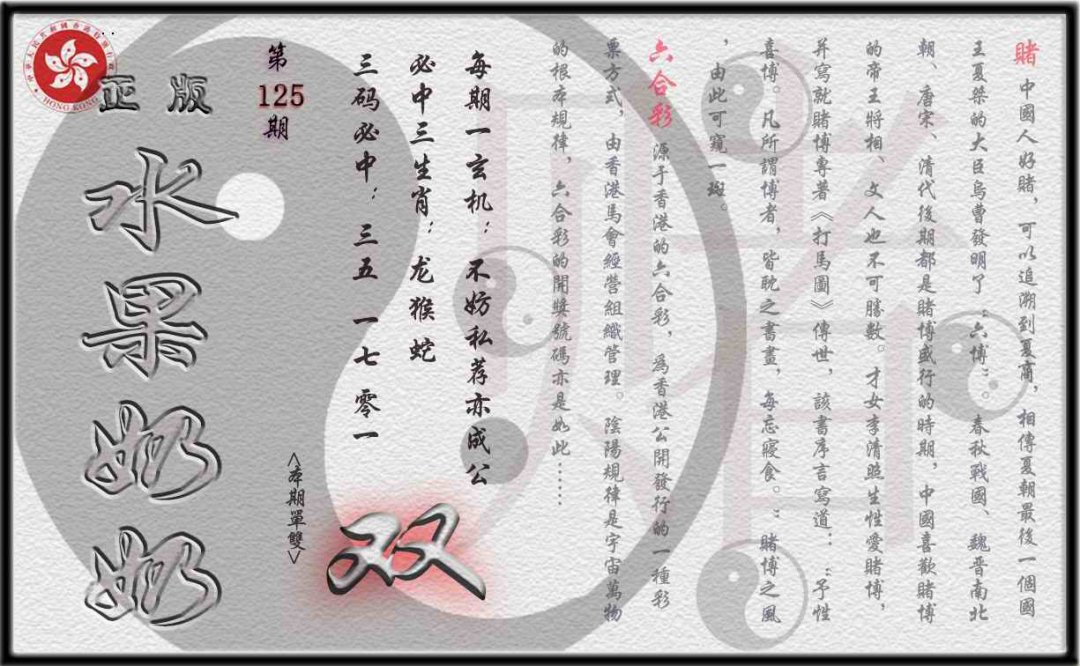 賭 中國人好賭，可以追溯到夏商，相傳夏朝最後一個國
王夏桀的大臣烏曹發明了“六博”。春秋戰國、魏晉南北
朝、唐宋、清代後期都是賭博盛行的時期，中國喜歡賭博
的帝王將相、文人也不可勝數。才女李清照生性愛賭博，
并寫就賭博專著《打馬圖》傳世，該書序言寫道：“予性
喜博。凡所謂博者，皆耽之書畫，每忘寢食。”賭博之風
，由此可窺一斑。
六合彩 源于香港的六合彩，為香港公開發行的一種彩
票方式，由香港馬會經營組織管理。陰陽規律是宇宙萬物
的根本規律，六合彩的開獎號碼亦是如此……
每期一玄机：不妨私荐亦成公
必中三生肖：龙猴蛇
三码必中：三五 一七 零一
双
<本期單雙>
第
125
期
正版
水果奶奶
HONG KONG